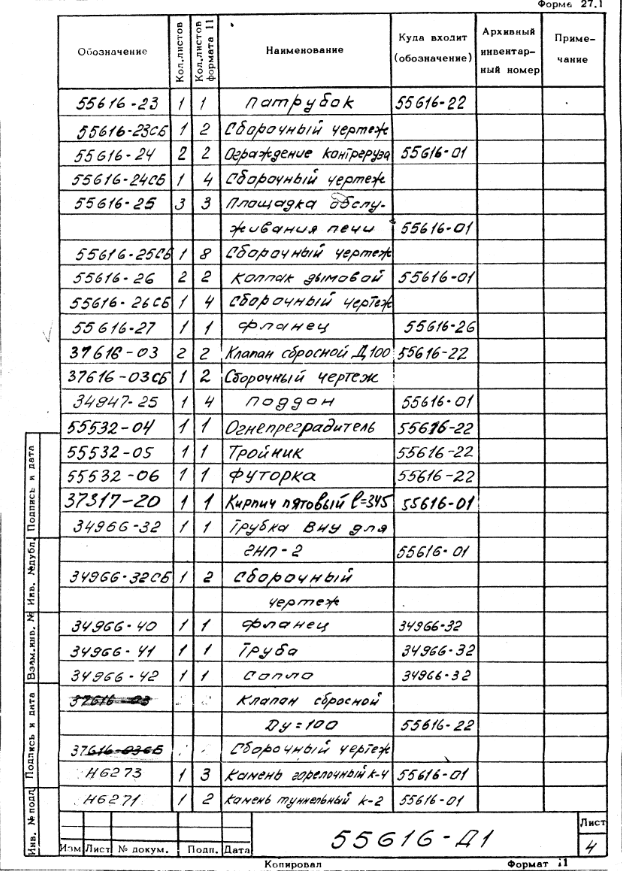 Форма 27.1
Обозначение Кол.листов Кол.листов формата 11 Наименование Куда входит (обозначение) Архивный инвентарный номер Примечание
55616-23 1 1 Патрубок 55616-22
55616-23СБ 1 2 Сборочный чертеж
55616-24 2 2 Ограждение контргруза 55616-01
55616-24СБ 1 4 Сборочный чертеж
55616-25 3 3 Площадка обслу-
живания печи 55616-01
55616-25СБ 1 8 Сборочный чертеж
55616-26 2 2 Колпак дымовой 55616-01
55616-26СБ 1 4 Сборочный чертеж
55616-27 1 1 Фланец 55616-26
37616-03 2 2 Клапан сбросной Д100 55616-22
37616-03СБ 1 2 Сборочный чертеж
34847-25 1 4 Поддон 55616-01
55532-04 1 1 Огнепреградитель 55616-22
55532-05 1 1 Тройник 55616-22
55532-06 1 1 Футорка 55616-22
37317-20 1 1 Кирпич пятовый l=345 55616-01
34966-32 1 1 Трубка ВНУ для
ГНП-2 55616-01
34966-32СБ 1 2 Сборочный
чертеж
34966-40 1 1 Фланец 34966-32
34966-41 1 1 Труба 34966-32
34966-42 1 1 Сопло 34966-32
37616-03 Клапан сбросной
Ду=100 55616-22
37616-03СБ Сборочный чертеж
Н6273 1 3 Камень горелочный К-4 55616-01
Н6271 1 2 Камень туннельный К-2 55616-01
Инв. № подл. Подпись и дата Взам.инв. № Инв. № дубл. Подпись и дата
Изм Лист № докум. Подп. Дата
55616-Д1
Лист
4
Копировал Формат 11